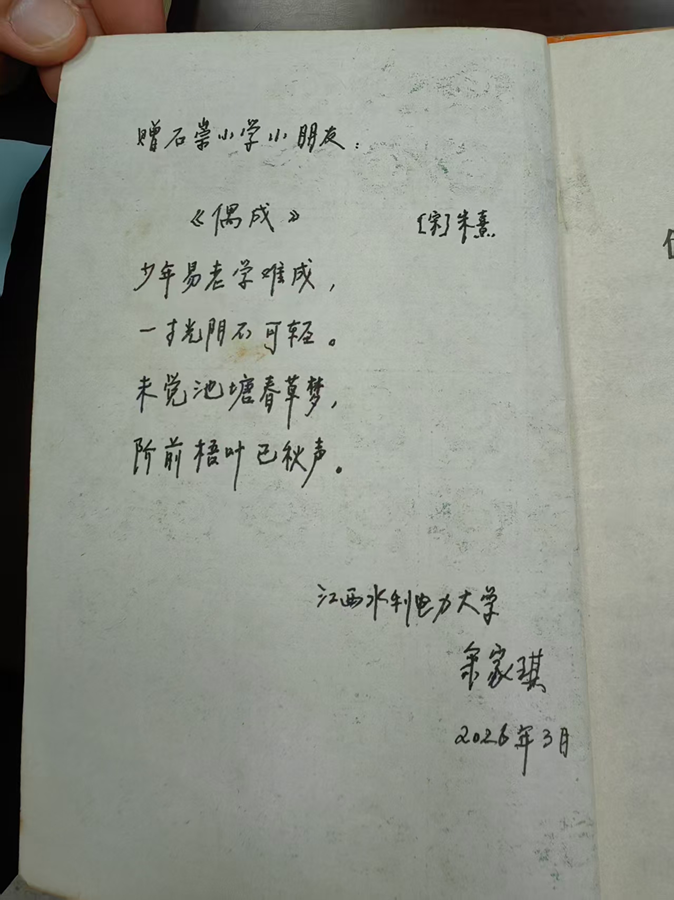 赠石崇小学小朋友：
《偶成》 [宋]朱熹
少年易老学难成，
一寸光阴不可轻。
未觉池塘春草梦，
阶前梧叶已秋声。
江西水利电力大学
余家琪
2026年3月